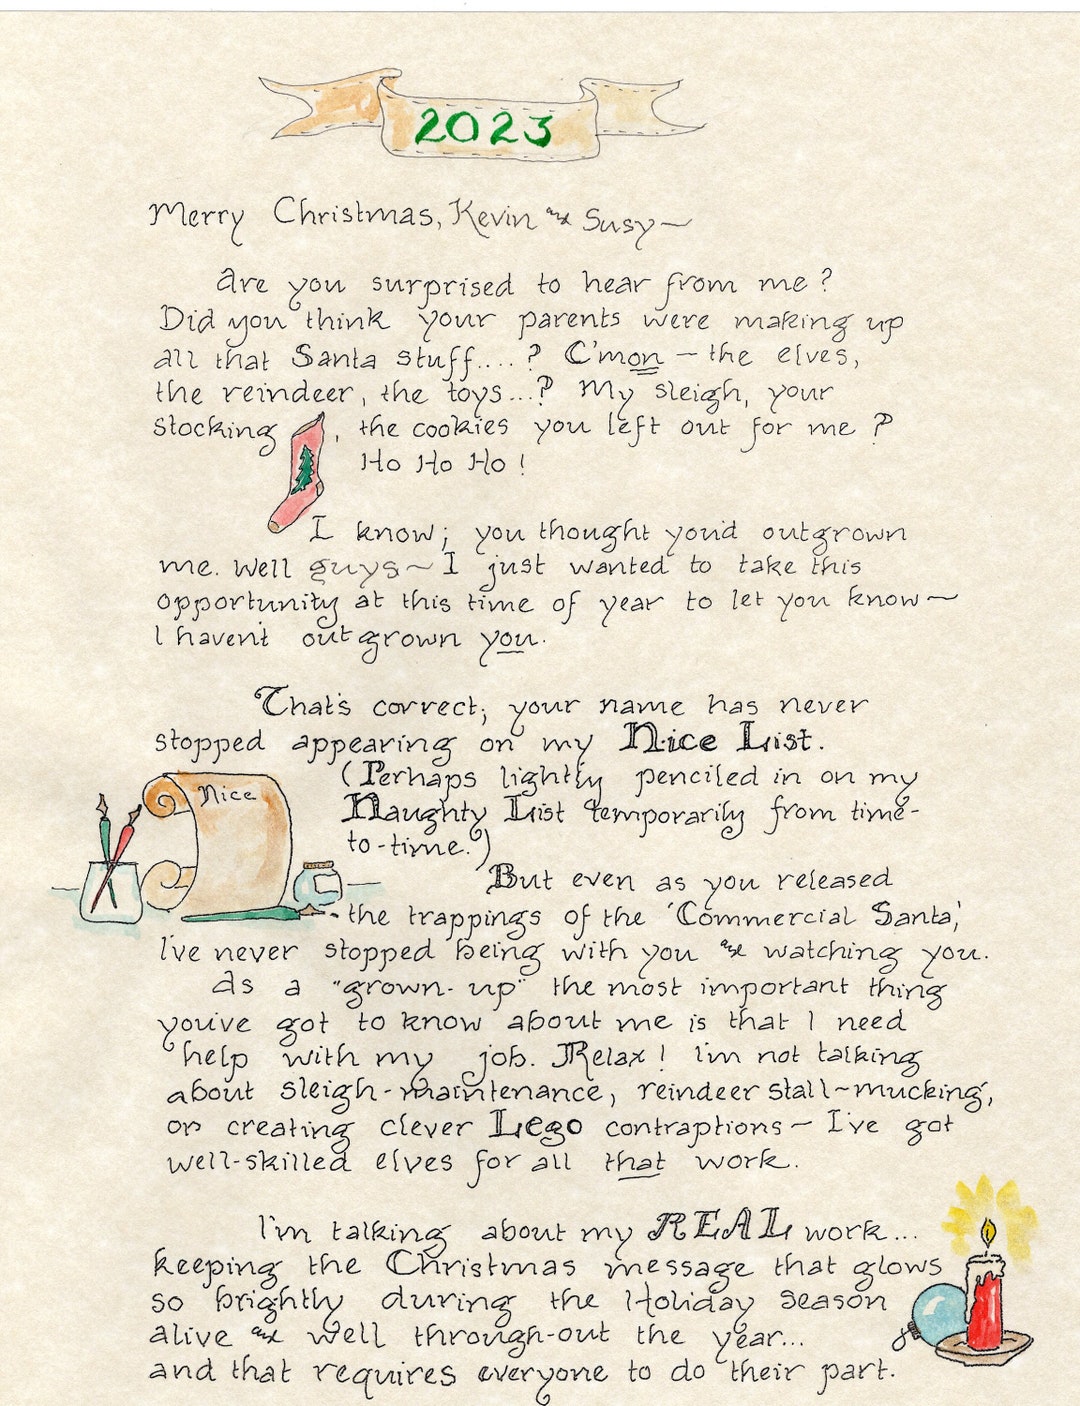 2023
Merry Christmas, Kevin and Susy~
Are you surprised to hear from me?
Did you think your parents were making up
all that Santa stuff....? C'mon — the elves,
the reindeer, the toys...? My sleigh, your
stocking, the cookies you left out for me?
Ho Ho Ho!
I know; you thought you'd outgrown
me. Well guys~ I just wanted to take this
opportunity at this time of year to let you know~
I haven't outgrown you.
That's correct; your name has never
stopped appearing on my Nice List.
Nice
(Perhaps lightly penciled in on my
Naughty List temporarily from time-
to-time.)
But even as you released
the trappings of the 'Commercial Santa,'
I've never stopped being with you and watching you.
As a "grown-up" the most important thing
you've got to know about me is that I need
help with my job. Relax! I'm not talking
about sleigh-maintenance, reindeer stall-mucking,
or creating clever Lego contraptions~ I've got
well-skilled elves for all that work.
I'm talking about my REAL work...
keeping the Christmas message that glows
so brightly during the Holiday Season
alive and well through-out the year...
and that requires everyone to do their part.